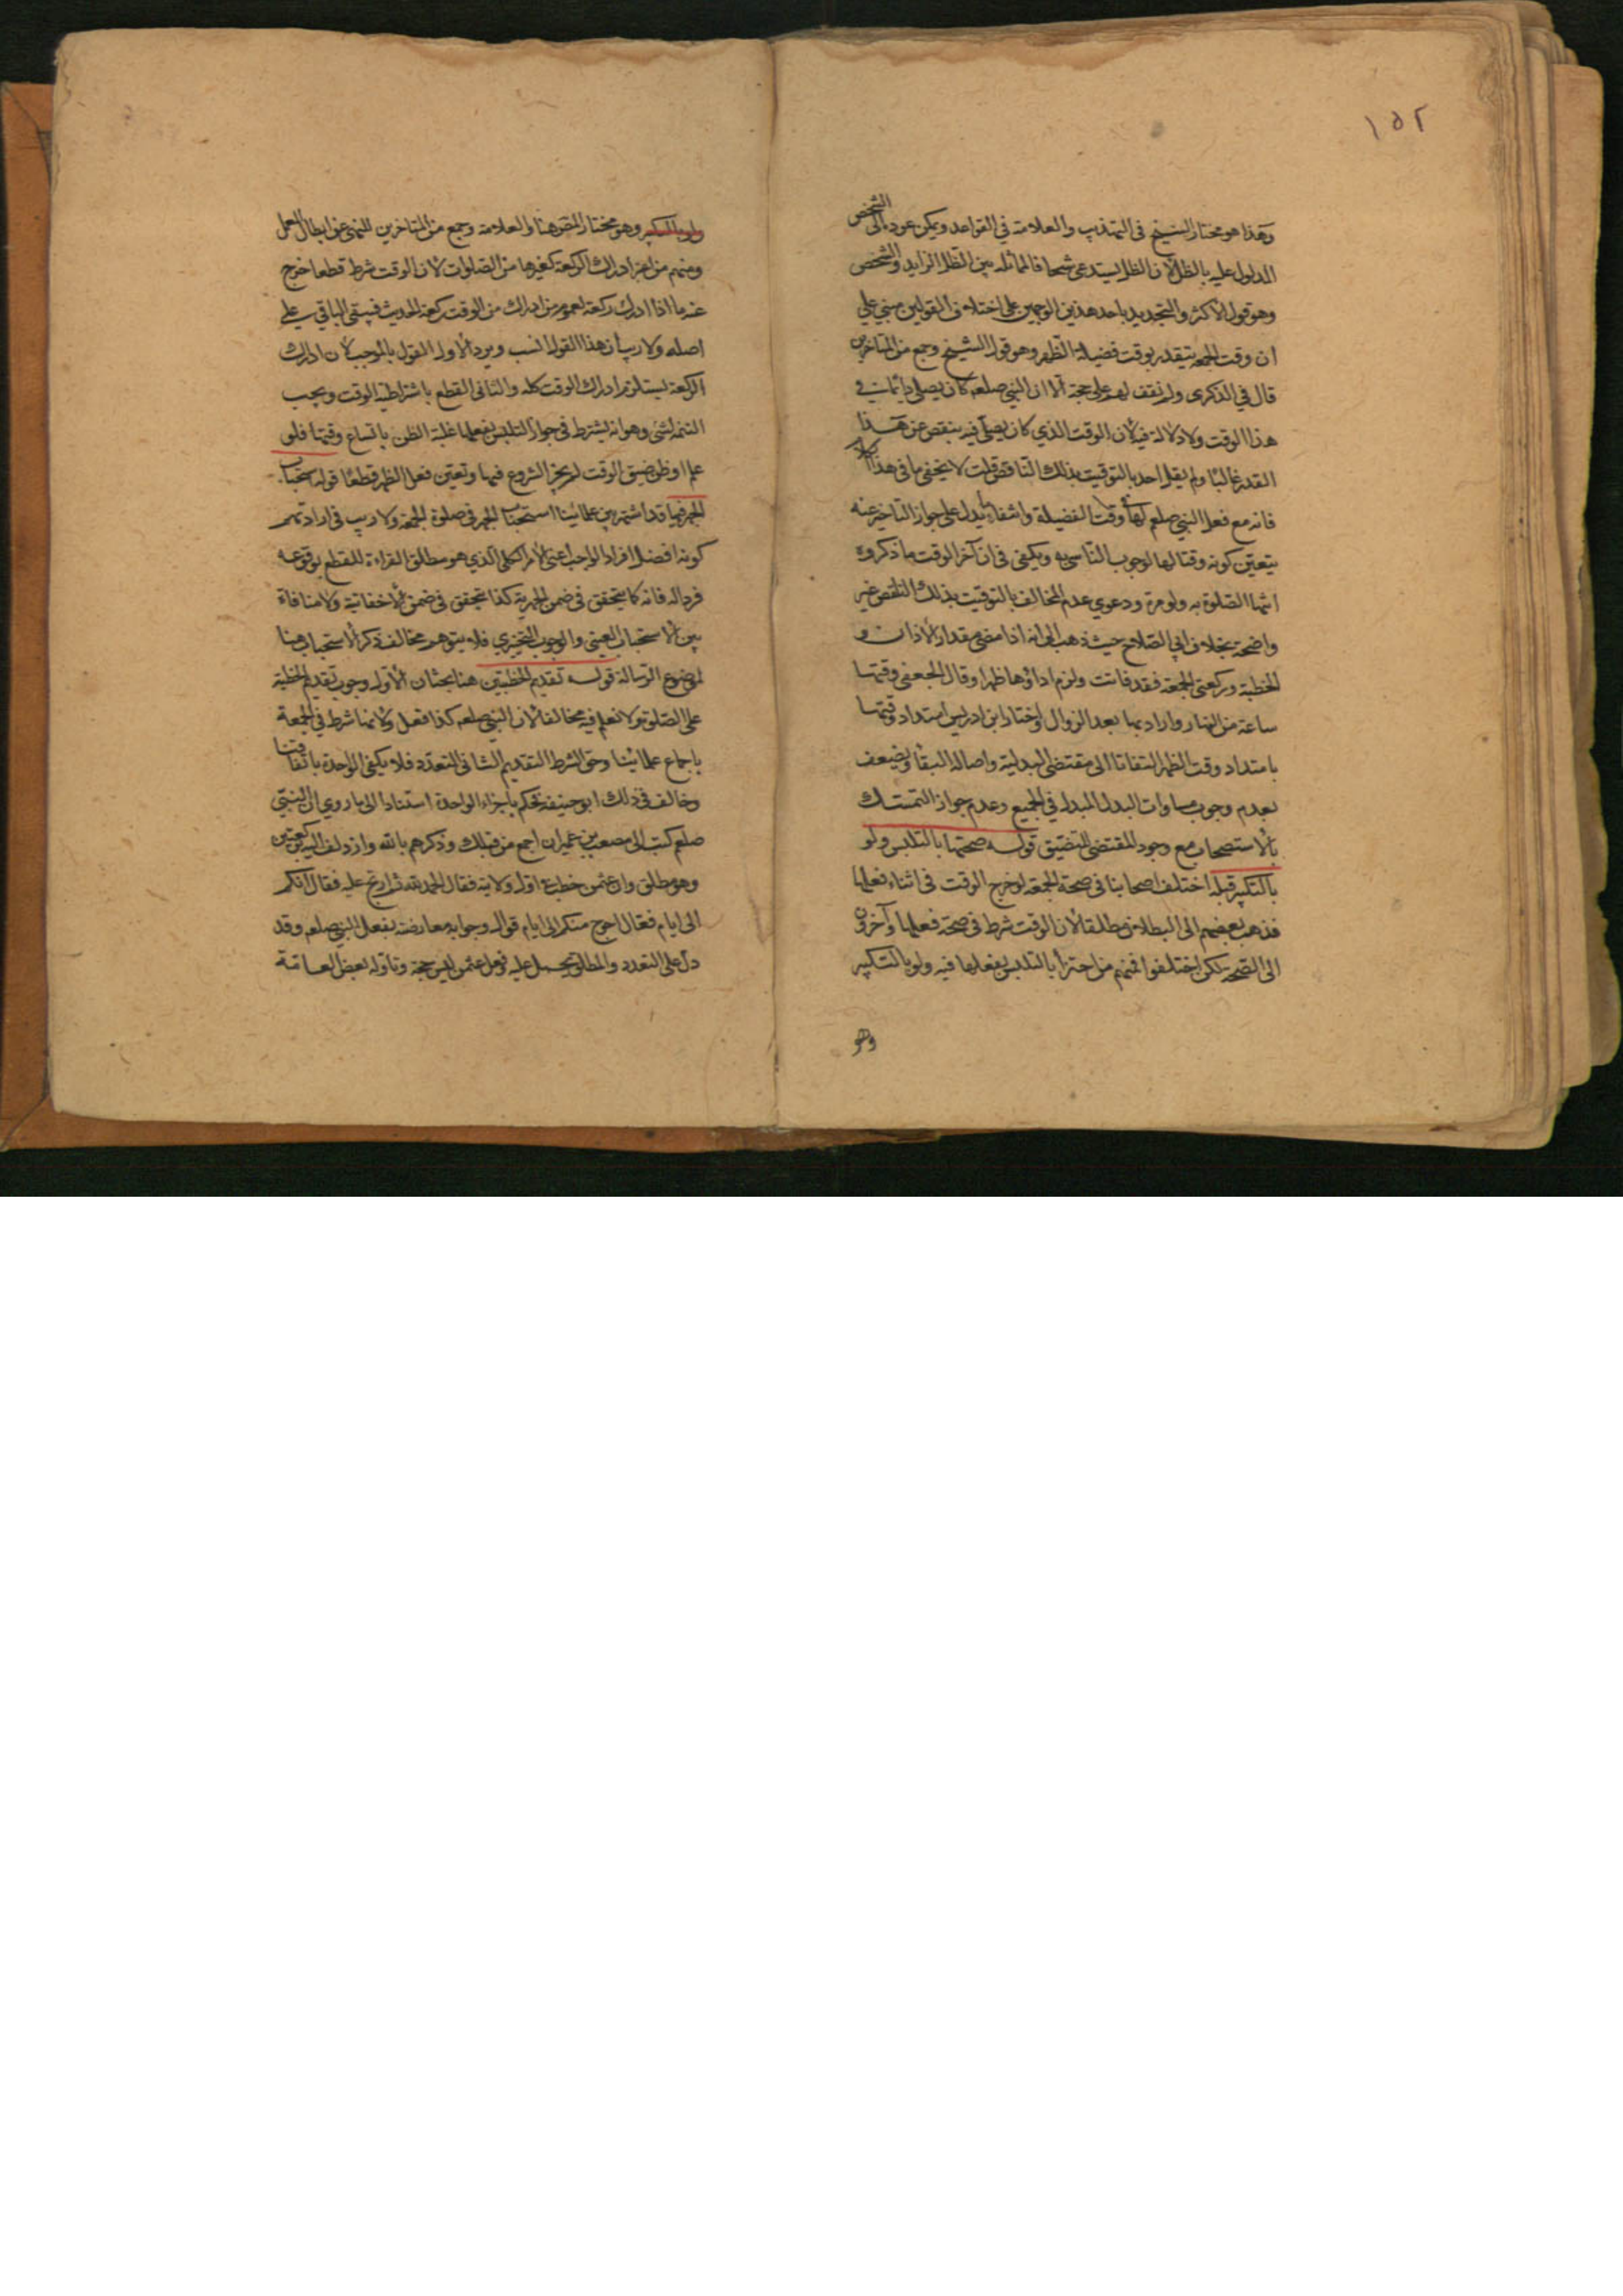 ١٥٢
وهذا هو مختار الشيخ في التهذيب والعلامة في القواعد ويمكن عوده الى الشخص
المدلول عليه بالظل لان الظل يستدعي شبحا فالمماثله بين الظل الزايد والشخص
وهو قول الاكثر والتحديد باحد هذين الوجهين على اختلاف القولين مبني علي
ان وقت الجمعة يتقدر بوقت فضيلة الظهر وهو قول الشيخ وجمع من المتاخرين
قال في الذكرى ولم نقف لهم على حجة الا ان النبي صلعم كان يصلي دائما في
هذا الوقت ولا دلالة فيه لان الوقت الذي كان يصلي فيه ينقص عن هذا
القدر غالبا ولم يقل احد بالتوقيت بذلك الناقص قلت لا يخفى ما في هذا الكلام
فانه مع فعل النبي صلعم لها وقت الفضيلة وانتفاء ما يدل على جواز التاخير عنه
يتعين كونه وقتا لها لوجوب التاسي به ويكفي في ان آخر الوقت ما ذكروه
انتهاء الصلوة به ولو مرة ودعوي عدم المخالف بالتوقيت بذلك الناقص غير
واضحة بخلاف ابي الصلاح حيث ذهب الى انه اذا مضى مقدار الاذان و
الخطبة وركعتى الجمعة فقد فاتت ولزم اداؤها ظهرا وقال الجعفي وقتها
ساعة من النهار واراد بها بعد الزوال واختار ابن ادريس امتداد وقتها
بامتداد وقت الظهر التفاتا الى مقتضى البدلية واصالة البقاء ويضعف
بعدم وجوب مساوات البدل المبدل في الجميع وعدم جواز التمسك
بالاستصحاب مع وجود المقتضى للتضيق قوله صحتها بالتلبس ولو
بالتكبير قبله اختلف اصحابنا في صحة الجمعة لو خرج الوقت في اثناء فعلها
فذهب بعضهم الى البطلان مطلقا لان الوقت شرط في صحة فعلها وآخرون
الى الصحة لكن اختلفوا فمنهم من اجتزأ بالتلبس بفعلها فيه ولو بالتكبير
وهو
ولو بالتكبير وهو مختار المص هنا والعلامة وجمع من المتاخرين للنهي عن ابطال العمل
ومنهم من اعتبر ادراك الركعة كغيرها من الصلوات لان الوقت شرط قطعا خرج
عنه ما اذا ادرك ركعة لعموم من ادرك من الوقت ركعة الحديث فيبقى الباقي على
اصله ولا ريب ان هذا القول انسب ويرد الاول القول بالموجب لان ادراك
الركعة يستلزم ادراك الوقت كله والثاني القطع باشتراطية الوقت ويجب
التنبه لشئ وهو انه يشترط في جواز التلبس بفعلها غلبة الظن باتساع وقتها فلو
علم او ظن ضيق الوقت لم يجز الشروع فيها وتعين فعل الظهر قطعا قوله استحباب
الجهر فيها قد اشتهر بين علمائنا استحباب الجهر في صلوة الجمعة ولا ريب في ارادتهم
كونه افضل افراد الواجب اعني الامر الكلي الذي هو مطلق القراءة للقطع بوقوعه
فردا له فانه كما يتحقق في ضمن الجهرية كذا يتحقق في ضمن الاخفاتية ولا منافاة
بين الاستحباب العيني والوجوب التخييري فلا يتوهم مخالفة ذكر الاستحباب هنا
لموضوع الرسالة قوله تقديم الخطبتين هنا بحثان الاول وجوب تقديم الخطبة
على الصلوة ولا نعلم فيه مخالفا لان النبي صلعم كذا فعل ولانها شرط في الجمعة
باجماع علمائنا وحق الشرط التقديم الثاني التعدد فلا يكفي الواحدة باتفاقنا
وخالف في ذلك ابو حنيفه فحكم باجزاء الواحدة استنادا الى ما روي ان النبي
صلعم كتب الى مصعب بن عمير ان اجمع من قبلك وذكرهم بالله وازدلف اليه بركعتين
وهو مطلق وان عثمن خطب في اول ولايته فقال الحمد لله ثم ارتج عليه فقال انكم
الى امام فعال احوج منكم الى امام قوال وجوابه معارضته بفعل النبي صلعم وقد
دل على التعدد والمطلق يحمل عليه وفعل عثمن ليس حجة وتاوله بعض العامة